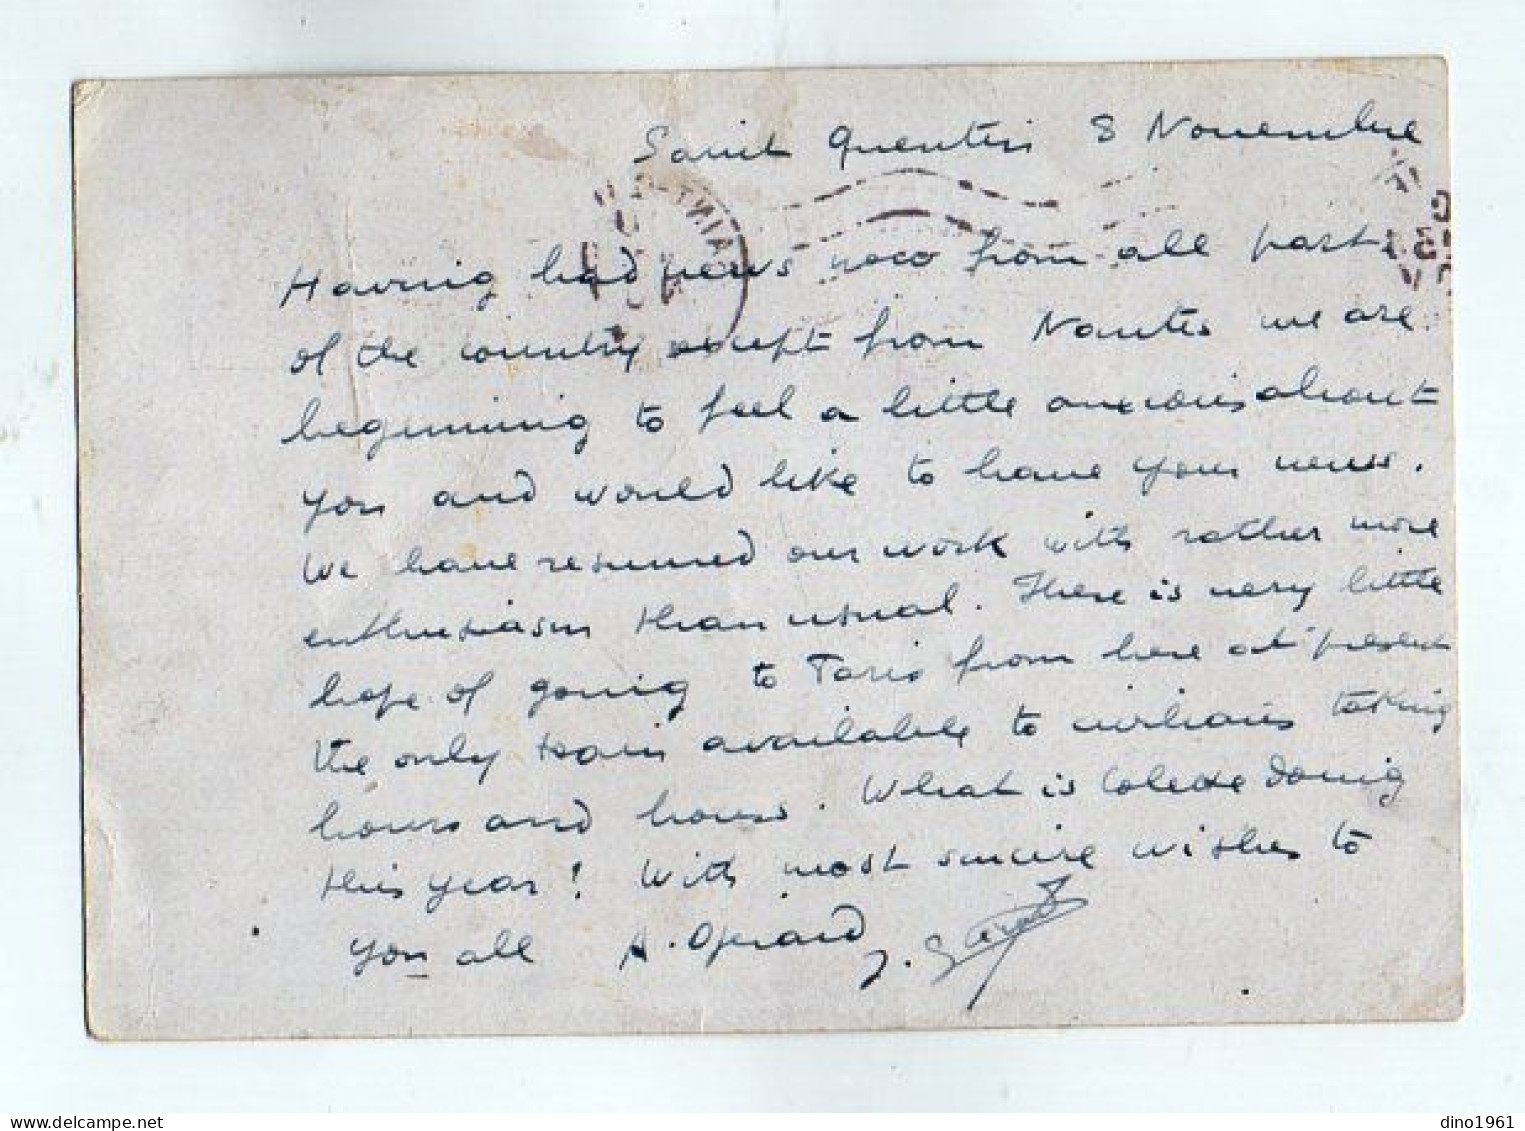 Saint Quentin 8 Novembre
Having had news now from all parts
of the country except from Nantes we are
beginning to feel a little anxious about
you and would like to have your news.
We have resumed our work with rather more
enthusiasm than usual. There is very little
hope of going to Paris from here at present
the only train available to civilians taking
hours and hours. What is Colette doing
this year! With most sincere wishes to
you all A. Gérard J. Gérard
SAINT-Q
dino1961